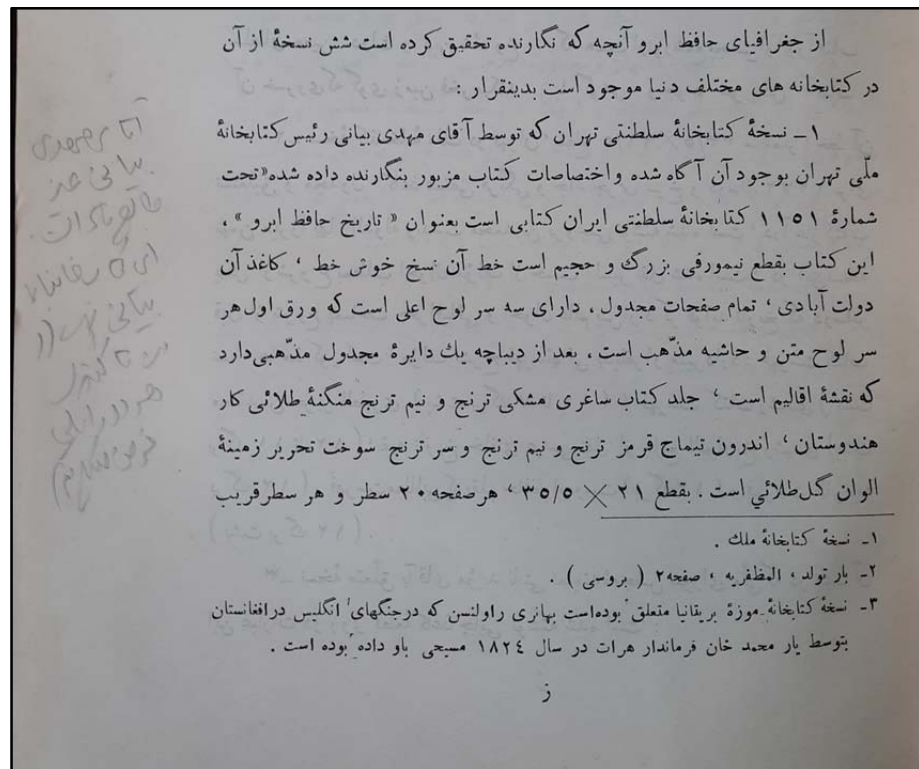 از جغرافیای حافظ ابرو آنچه که نگارنده تحقیق کرده است شش نسخهٔ از آن
در کتابخانه های مختلف دنیا موجود است بدینقرار :
۱ــ نسخهٔ کتابخانهٔ سلطنتی تهران که توسط آقای مهدی بیانی رئیس کتابخانهٔ
ملّی تهران بوجود آن آگاه شده و اختصاصات کتاب مزبور بنگارنده داده شده «تحت
شمارهٔ ۱۱۵۱ کتابخانهٔ سلطنتی ایران کتابی است بعنوان « تاریخ حافظ ابرو » ،
این کتاب بقطع نیمورقی بزرگ و حجیم است خط آن نسخ خوش خط ، کاغذ آن
دولت آبادی ، تمام صفحات مجدول ، دارای سه سر لوح اعلی است که ورق اول هر
سر لوح متن و حاشیه مذّهب است ، بعد از دیباچه یك دایرهٔ مجدول مذّهبی دارد
که نقشهٔ اقالیم است ، جلد کتاب ساغری مشکی ترنج و نیم ترنج منگنهٔ طلائی کار
هندوستان ، اندرون تیماج قرمز ترنج و نیم ترنج و سر ترنج سوخت تحریر زمینهٔ
الوان گل طلائی است . بقطع ۲۱ × ۳۵/۵ ، هر صفحه ۲۰ سطر و هر سطر قریب
۱ــ نسخهٔ کتابخانهٔ ملك .
۲ــ بار تولد ، المظفریه ، صفحه ۲ ( بروسی ) .
۳ــ نسخهٔ کتابخانهٔ موزهٔ بریقانیا متعلق بوده است بهانری راولنسن که درجنگهای انگلیس در افغانستان
بتوسط یار محمد خان فرماندار هرات در سال ۱۸۲٤ مسیحی باو داده بوده است .
ز